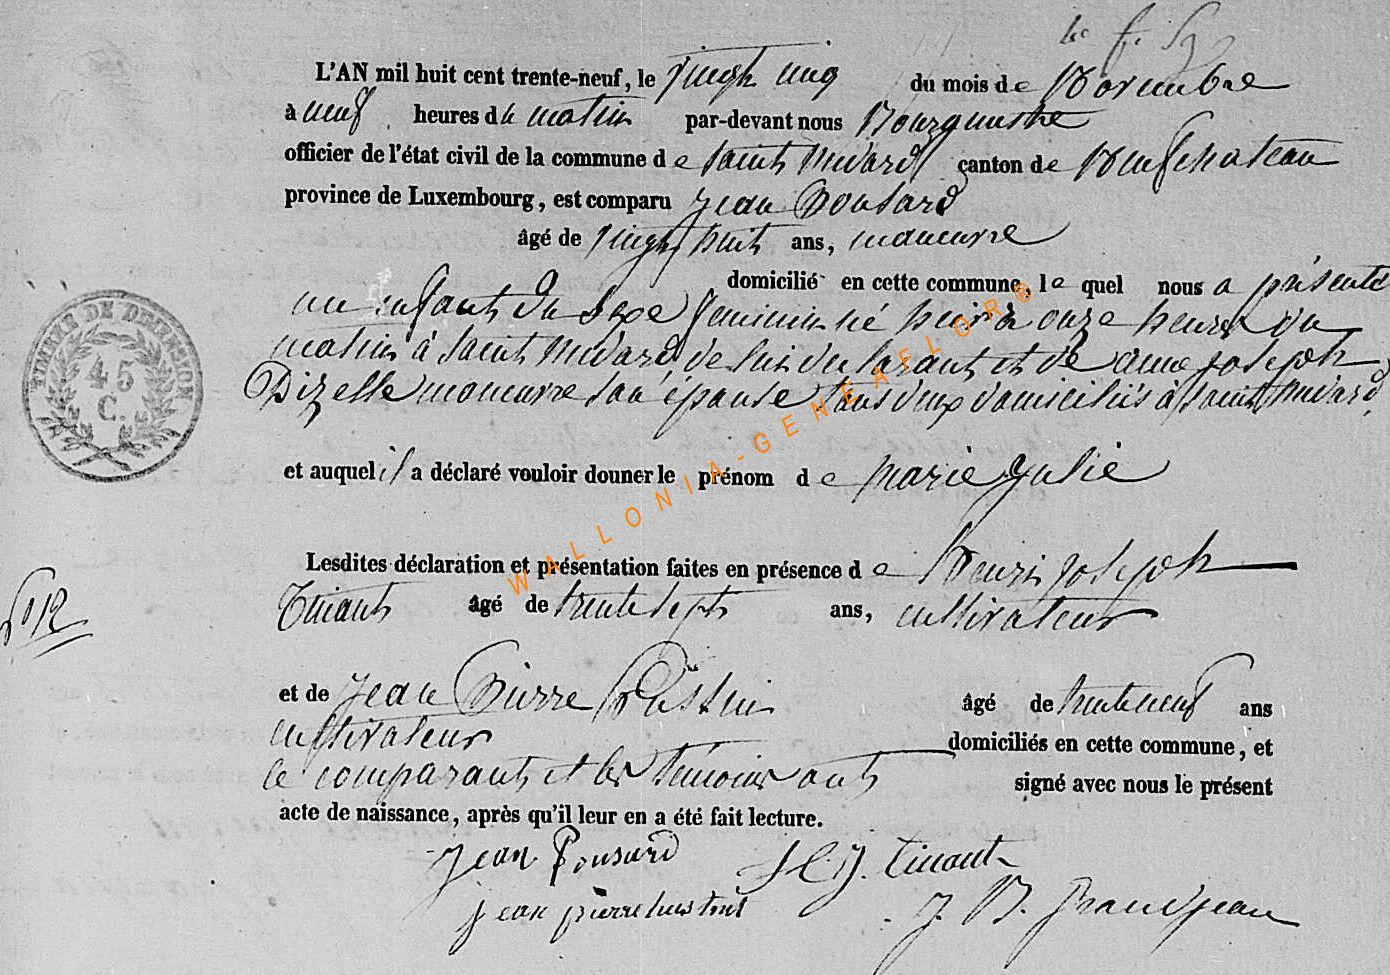 L'AN mil huit cent trente-neuf, le vingt cinq du mois de Novembre
à neuf heures du matin par-devant nous Bourgmestre
officier de l'état civil de la commune de Saint Médard canton de Neufchateau
province de Luxembourg, est comparu Jean Ponsard
âgé de vingt huit ans, manœuvre
domicilié en cette commune, le quel nous a présenté
un enfant du sexe feminin né hier à onze heures du
matin à Saint Médard de lui déclarant et de anne joseph
Dizelle manœuvre son épouse tous deux domiciliés à Saint Médard
et auquel il a déclaré vouloir donner le prénom de Marie Julie
Lesdites déclaration et présentation faites en présence de Henri Joseph
Tinant âgé de trente sept ans, cultivateur
512
et de Jean Pierre Hustin âgé de trente neuf ans
cultivateur domiciliés en cette commune, et
le comparant et les témoins ont signé avec nous le présent
acte de naissance, après qu'il leur en a été fait lecture.
Jean Ponsard H. J. Tinant
jean pierre hustin J. B. Grandjean
TIMBRE DE DIMENSION
45
C.
WALLONIA-GENEAFLOR®